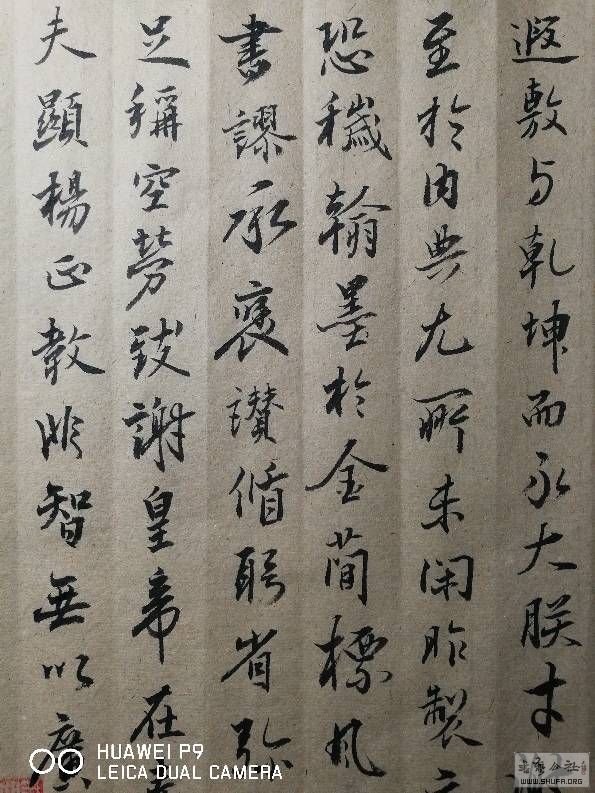 遐敷与乾坤而永大朕才
至於内典尤所未閑昨製
恐穢翰墨於金簡標瓦
書謬承褒讚循躬省
足稱空勞致謝皇帝在
夫顯楊正教非智無以廣
HUAWEI P9
LEICA DUAL CAMERA
WWW.SHUFA.ORG